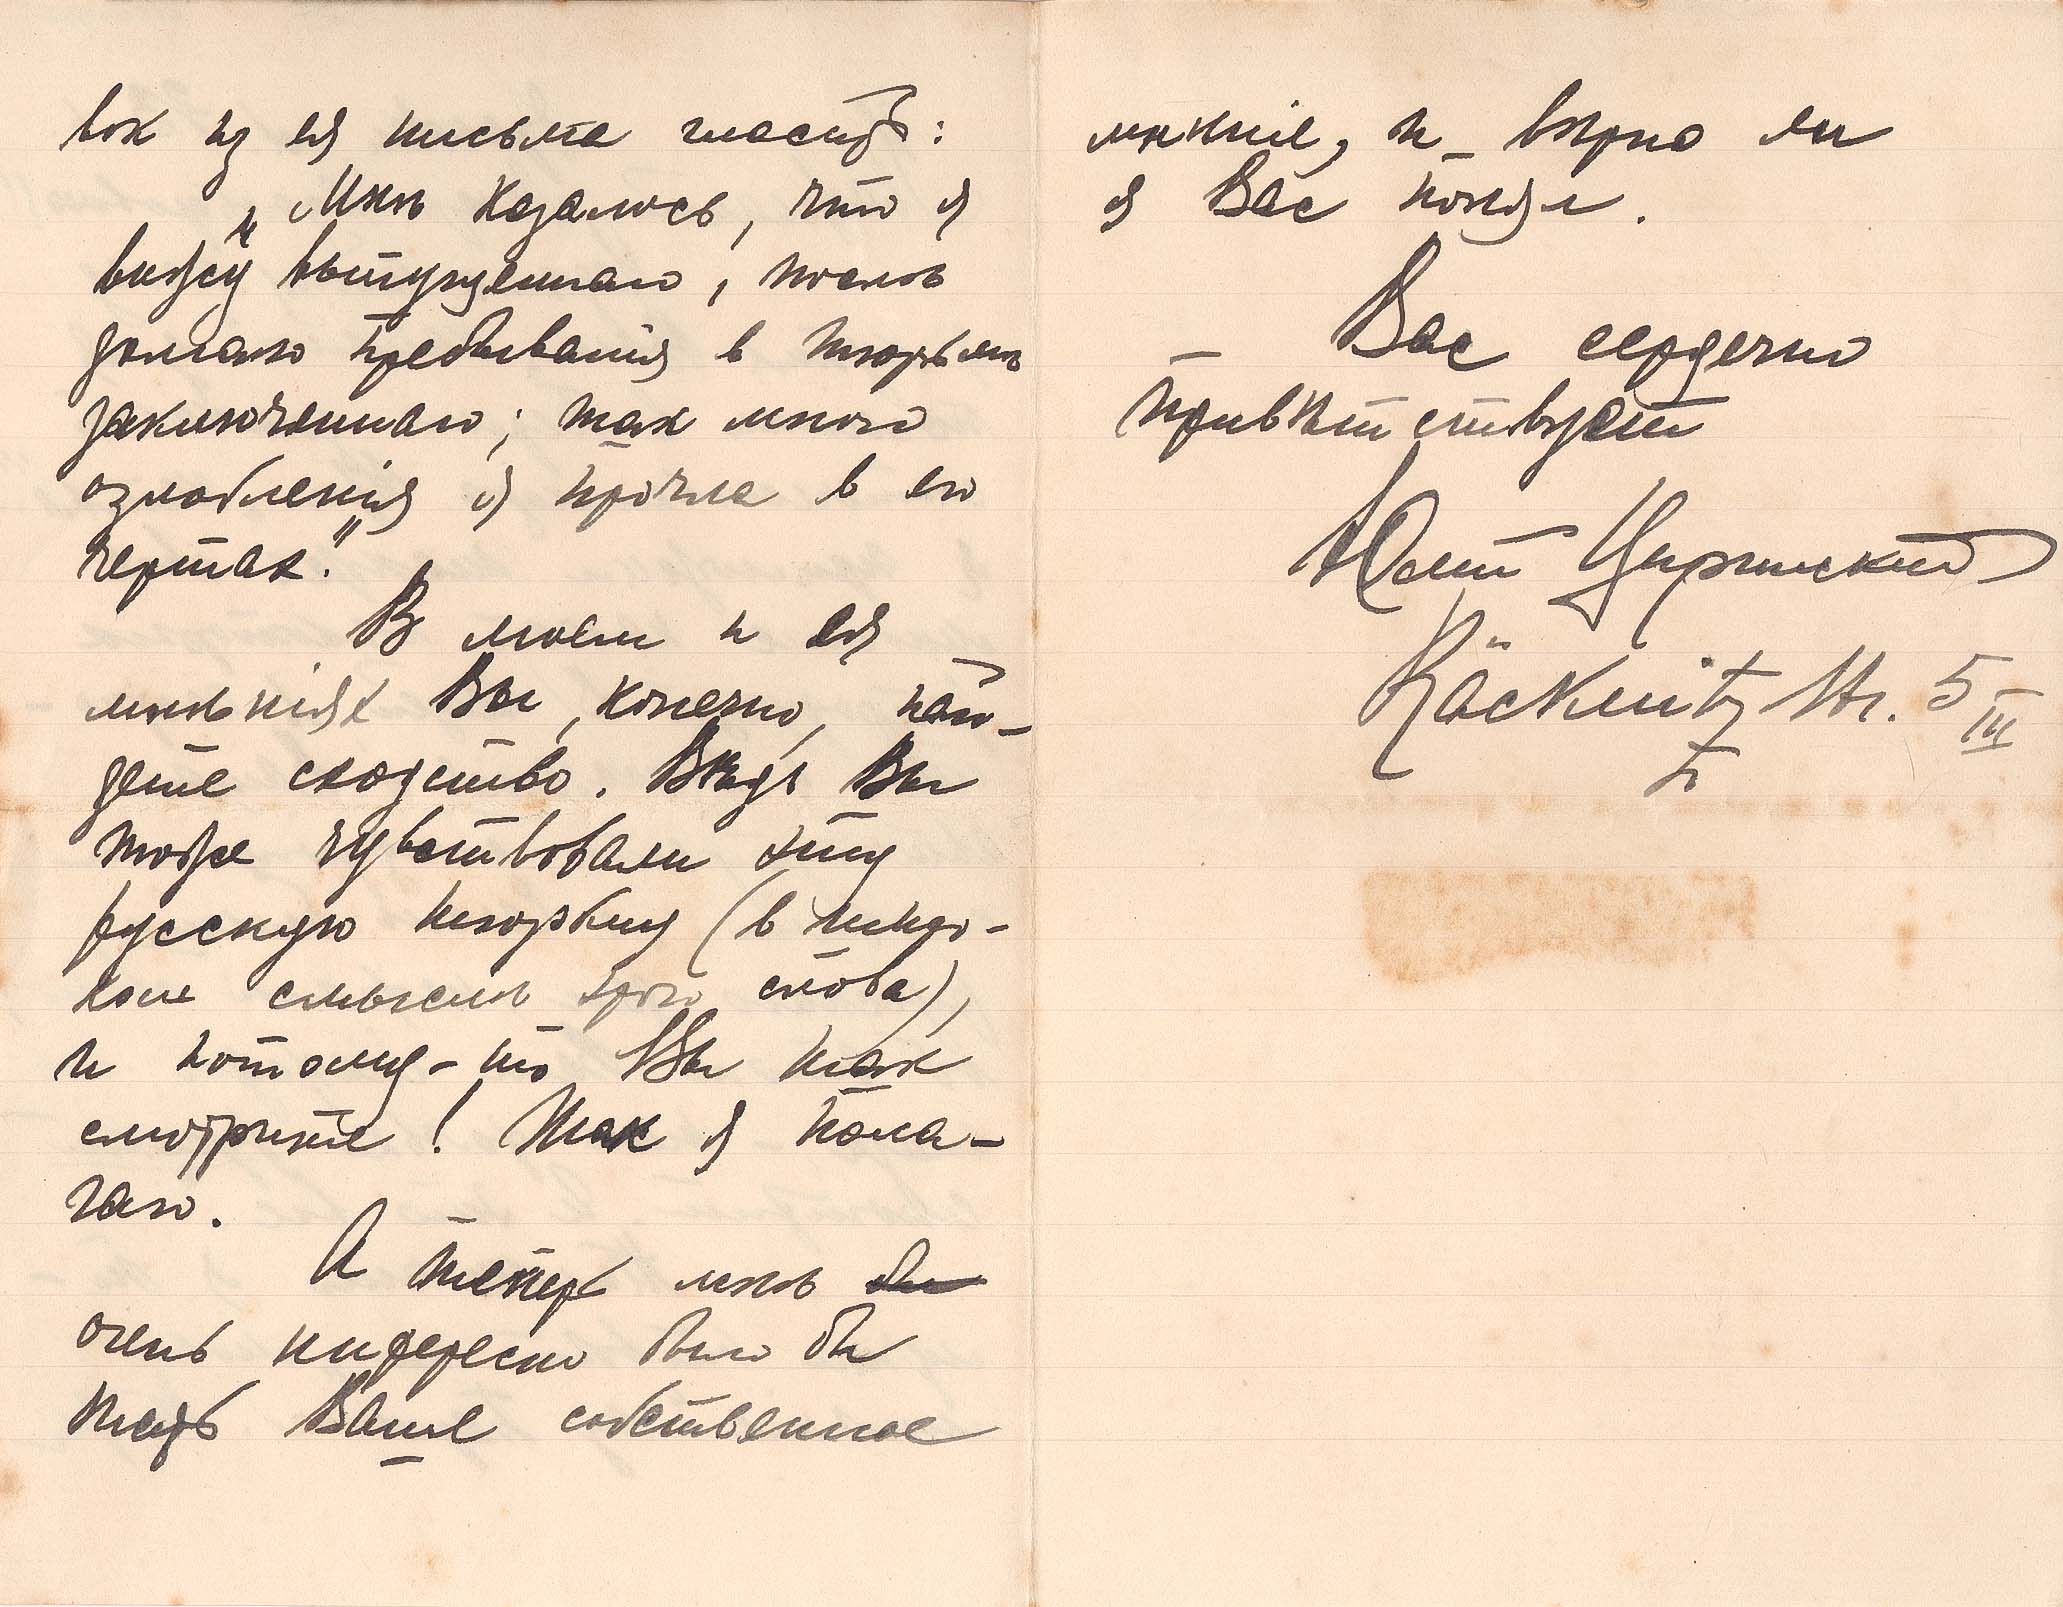 вок из ея письма гласитъ:
„Мнѣ казалось, что я
вижу выпущеннаго, послѣ
долгаго пребыванія в тюрьмѣ
заключеннаго; так много
озлобленія я прочла в его
чертах."
В моем и ея
мнѣніях Вы, конечно, най-
дете сходство. Вѣдь Вы
тоже чувствовали эту
русскую тюрьму (в широ-
ком смыслѣ этого слова),
и потому-то Вы так
смотрите! Так я пола-
гаю.
А теперь мнѣ
очень интересно было бы
знать Ваше собственное
мнѣніе, и вѣрно ли
я Вас понял.
Вас сердечно
привѣтствует
Юлий
Räcknitz Str. 5
III